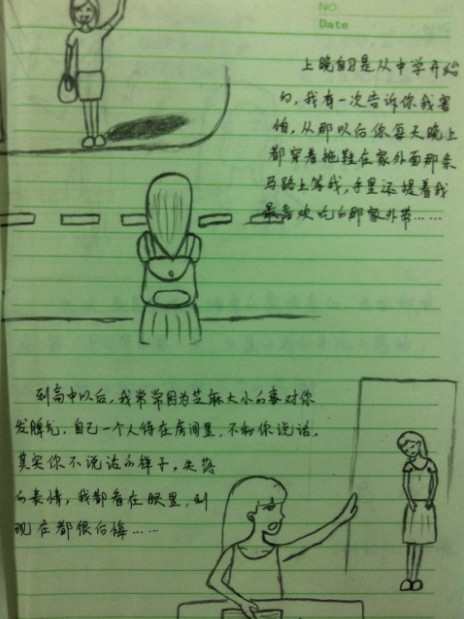 NO
Date
上晚自习是从中学开始
的，我有一次告诉你我害
怕，从那以后你每天晚上
都穿着拖鞋在家外面那条
马路上等我，手里还提着我
最喜欢吃的那家外带……
到高中以后，我常常因为芝麻大小的事对你
发脾气，自己一个人待在房间里，不和你说话。
其实你不说话的样子，失落
的表情，我都看在眼里，到
现在都很后悔……